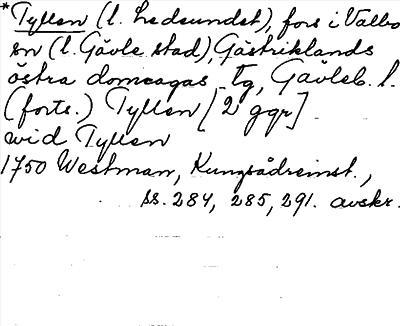 *Tyften (l. Hedsundet), fors i Valbo
sn (l. Gävle stad), Gästriklands
östra domsagas tg, Gävleb. l.
(forts.) Tyften [2 ggr]
wid Tyften
1750 Westman, Kungsådreinst.,
ss. 284, 285, 291. avskr.